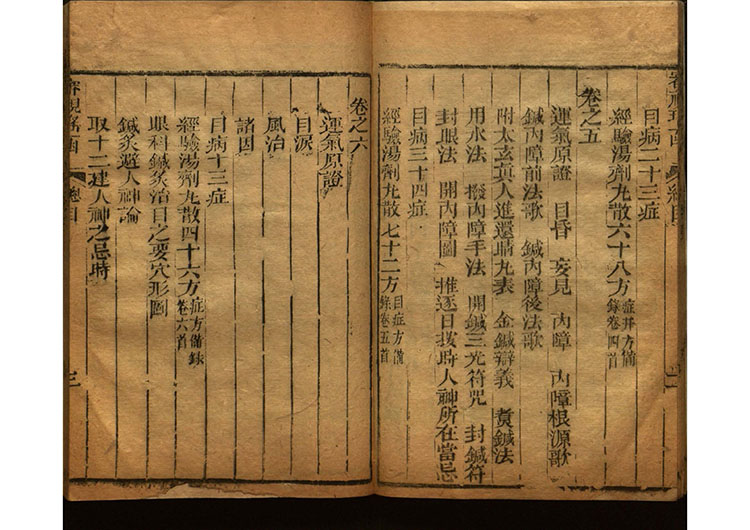 目病二十三症
經驗湯劑丸散六十八方 症并方備錄卷四首
卷之五
運氣原證 目昏 妄見 內障 內障根源歌
鍼內障前法歌 鍼內障後法歌
附太玄真人進還睛丸表 金鍼辯義 煑鍼法
用水法 撥內障手法 開鍼三光符咒 封鍼符
封眼法 開內障圖 推逐日按時人神所在當忌
目病三十四症
經驗湯劑丸散七十二方 目症方備錄卷五首
卷之六
運氣原證
目淚
風治
諸因
目病十三症
經驗湯劑丸散四十六方 症方備錄卷六首
眼科鍼灸治目之要穴形圖
鍼灸避人神論
取十二建人神之忌時
總目
三